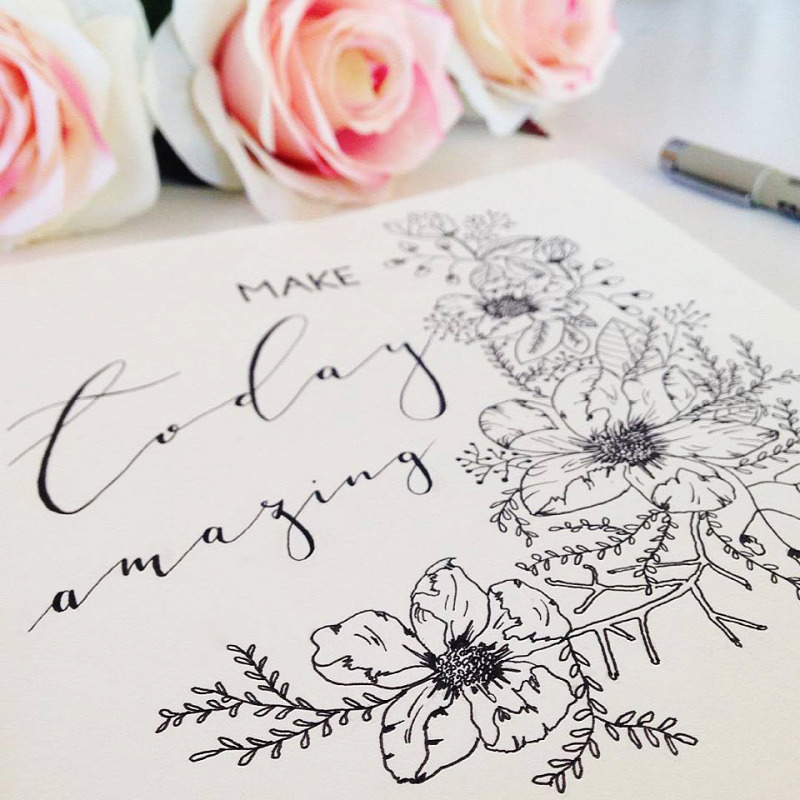 MAKE
today
amazing